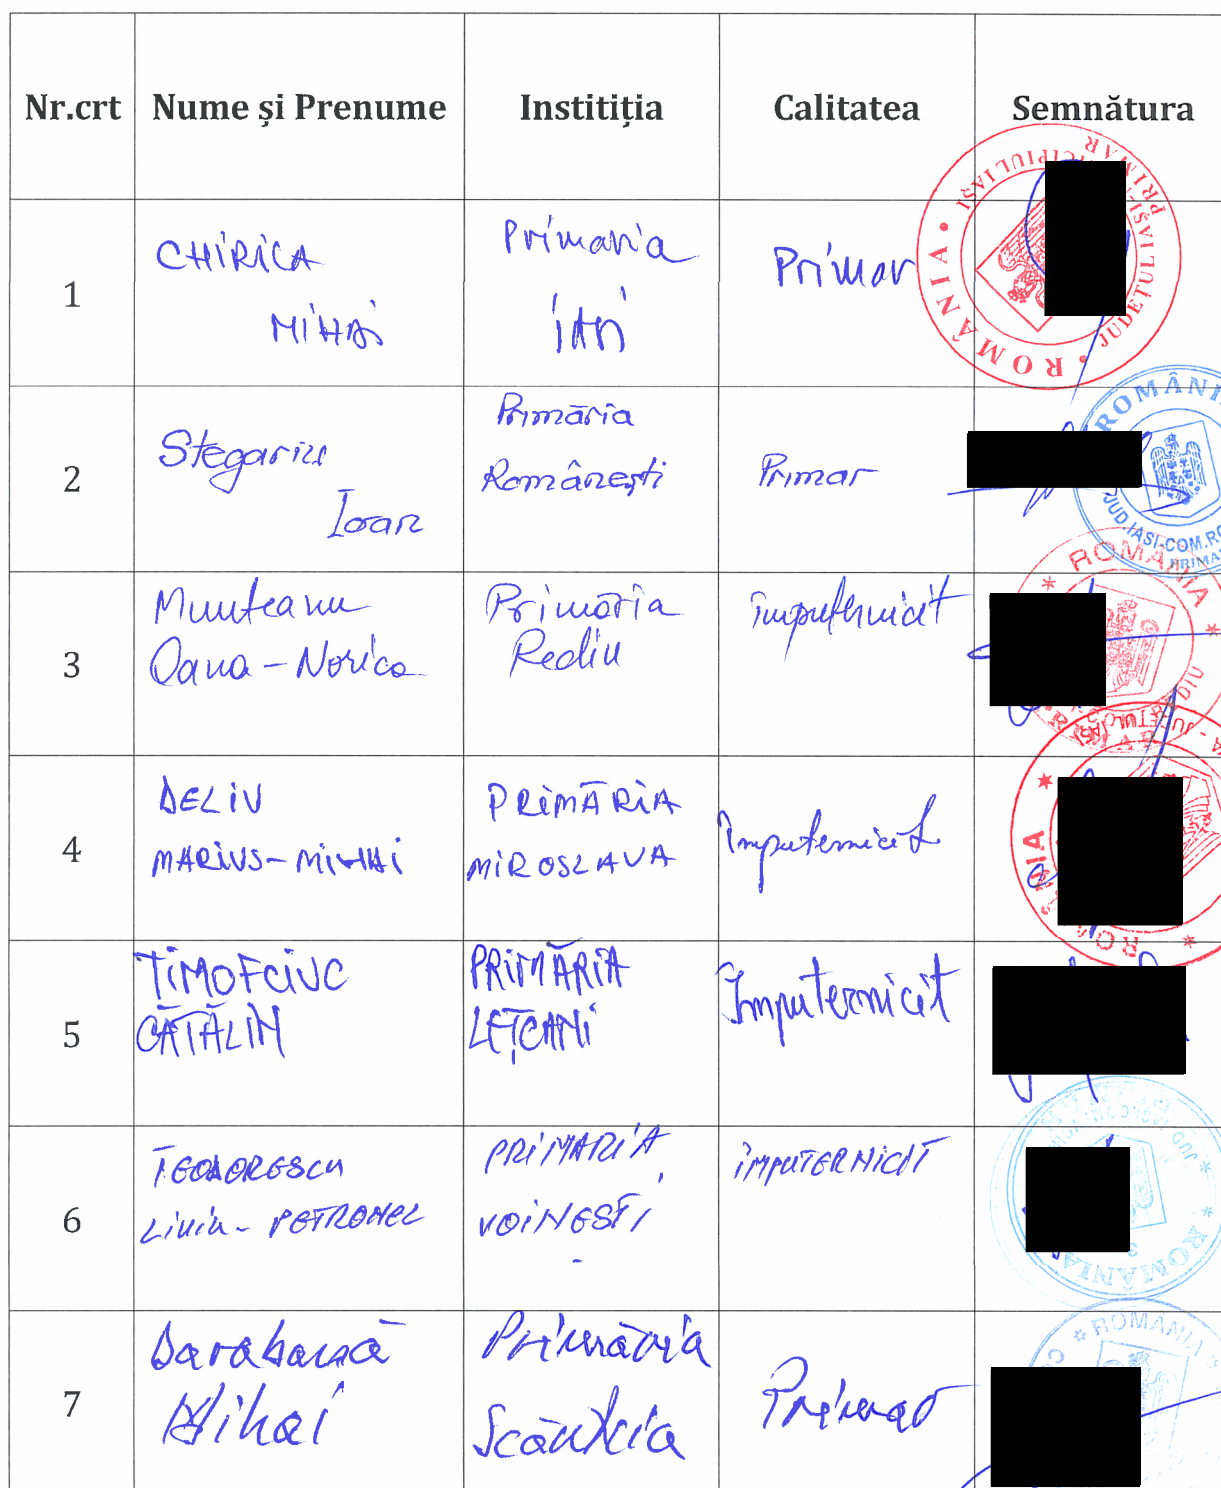 Nr.crt Nume și Prenume Instiția Calitatea Semnătura
1 CHIRICA MIHAI Primaria IAȘI Primar
ROMÂNIA • ROMÂNIA • JUDEȚUL IAȘI PRIMAR
2 Stegariu Ioan Primăria Românești Primar
ROMÂNIA
JUD. IASI-COM.RO
PRIMA
3 Munteanu Oana-Norica Primăria Rediu împuternicit
* ROMÂNIA *
4 DELIU MARIUS-MIHAI PRIMĂRIA MIROSLAVA Împuternicit
5 TIMOFCIUC CĂTĂLIN PRIMĂRIA LEȚCANI Împuternicit
6 TEODORESCU Liviu-PETRONEL PRIMARIA VOINESTI ÎMPUTERNICIT
* ROMÂNIA
7 Darabană Mihai Primăria Scânteia Primar
* ROMANIA *